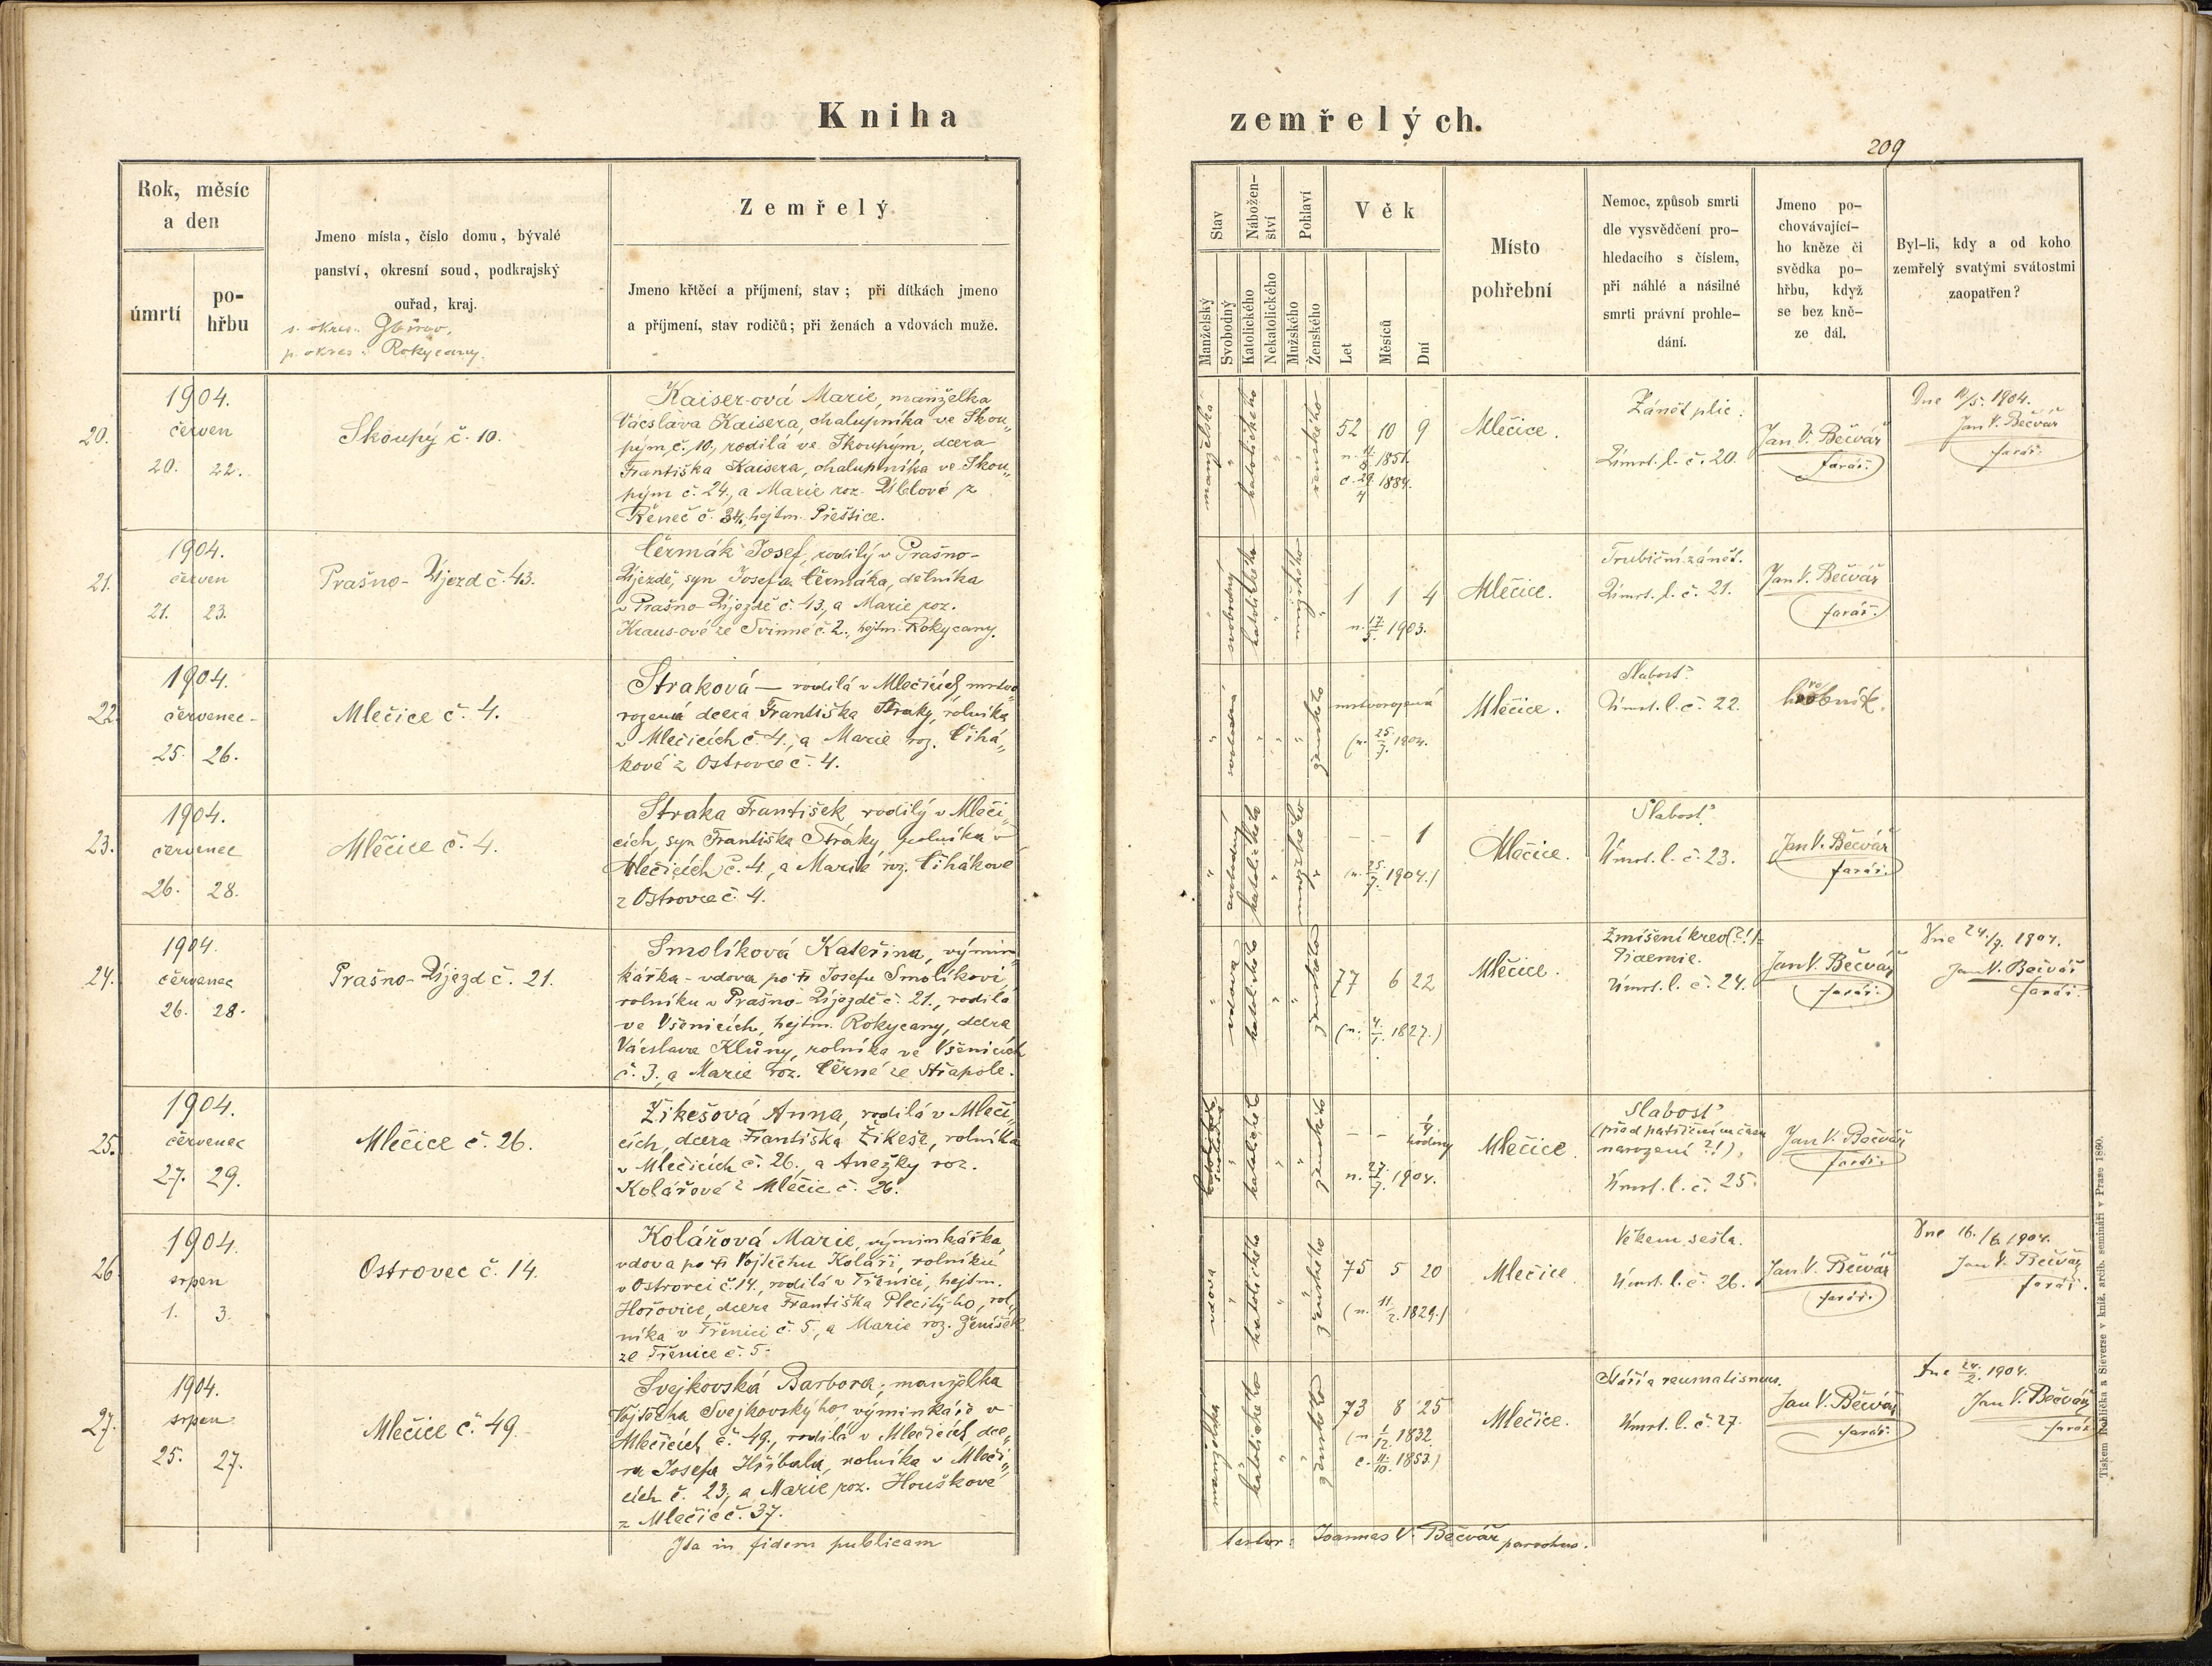 Kniha
zemřelých.
209
Rok, měsíc
a den
úmrtí
po-
hřbu
Jmeno místa, číslo domu, bývalé
panství, okresní soud, podkrajský
ouřad, kraj.
s. okres. Zbirov.
p. okres: Rokycany.
Zemřelý
Jmeno křtěcí a příjmení, stav; při dítkách jmeno
a příjmení, stav rodičů; při ženách a vdovách muže.
Stav
Nábožen-
ství
Pohlaví
Manželský
Svobodný
Katolického
Nekatolického
Mužského
Ženského
Věk
Let
Měsíců
Dní
Místo
pohřební
Nemoc, způsob smrti
dle vysvědčení pro-
hledacího s číslem,
při náhlé a násilné
smrti právní prohle-
dání.
Jmeno po-
chovávající-
ho kněze či
svědka po-
hřbu, když
se bez kně-
ze dál.
Byl-li, kdy a od koho
zemřelý svatými svátostmi
zaopatřen?
20.
1904.
červen
20. 22.
Skoupý č. 10.
Kaiser-ová Marie, manželka
Václava Kaisera, chalupníka ve Skou„
pým č. 10, rodilá ve Skoupým, dcera
Františka Kaisera, chalupníka ve Skou„
pým č. 24, a Marie roz. z
Řeneč č. 34, hejtm. Přeštice.
manželská " katolického " " ženského
52 10 9
n. 11/8. 1851.
c. 29/4 1884.
Mlečice.
Zánět plic.
Úmrt. l. č. 20.
Jan V. Bečvář
farář.
Dne 1904.
Jan V. Bečvář
farář.
21.
1904.
červen
21. 23.
Prašno-Újezd č. 43.
Čermák Josef, rodilý v Prašno-
Újezdě, syn Josefa Čermáka, dělníka
v Prašno-Újezdě č. 43, a Marie roz.
Kraus-ové ze Svinné č. 2., hejtm. Rokycany.
" svobodný katolického " mužského "
1 1 4
n. 17/5. 1903.
Mlečice.
Trubiční zánět.
Úmrt. l. č. 21.
Jan V. Bečvář
farář.
22.
1904.
červenec
25. 26.
Mlečice č. 4.
Straková — rodilá v Mlečicích, mrtvo„
rozená dcera Františka Straky, rolníka
v Mlečicích č. 4., a Marie roz. Čihá„
kové z Ostrovce č. 4.
" svobodná " " " ženského
mrtvorozená
(n. 25/7. 1904.
Mlečice.
Slabosť.
Úmrt. l. č. 22.
hrobník.
23.
1904.
červenec
26. 28.
Mlečice č. 4.
Straka František, rodilý v Mleči„
cích, syn Františka Straky, rolníka v
Mlečicích č. 4., a Marie roz. Čihákové
z Ostrovce č. 4.
" svobodný katolického " mužského "
– – 1
(n. 25/7. 1904.)
Mlečice.
Slabosť.
Úmrt. l. č. 23.
Jan V. Bečvář
farář.
24.
1904.
červenec
26. 28.
Prašno-Újezd č. 21.
Smolíková Kateřina, výmin„
kářka - vdova po † Josefu Smolíkovi,
rolníku v Prašno-Újezdě č. 21., rodilá
ve Všenicích, hejtm. Rokycany, dcera
Václava Klůny, rolníka ve Všenicích
č. 3., a Marie roz. Černé ze Střapole.
" vdova katolického " " ženského
77 6 22
(n. 4/1. 1827.)
Mlečice.
Zmíšení krve (?!)
Piaemie.
Úmrt. l. č. 24.
Jan V. Bečvář
farář.
Dne 24./7. 1904.
Jan V. Bečvář
farář.
25.
1904.
červenec
27. 29.
Mlečice č. 26.
Žikešová Anna, rodilá v Mleči„
cích, dcera Františka Žikeše, rolníka
v Mlečicích č. 26., a Anežky roz.
Kolářové z Mlečic č. 26.
" katolického " " ženského
– – hodiny
n. 27/7. 1904.
Mlečice.
Slabosť
(před patřičným časem
narození ?!).
Úmrt. l. č. 25.
Jan V. Bečvář
farář.
26
1904.
srpen
1. 3.
Ostrovec č. 14.
Kolářová Marie, výminkářka,
vdova po † Vojtěchu Koláři, rolníku
v Ostrovci č. 14., rodilá v Třenici, hejtm.
Hořovice, dcera Františka Plecitý-ho, rol„
níka v Třenici č. 5., a Marie roz. Ženíšek
ze Třenice č. 5.
vdova " katolického " " ženského
75 5 20
(n. 11/2. 1829.)
Mlečice.
Věkem sešla.
Úmrt. l. č. 26.
Jan V. Bečvář
farář.
Dne 16./6. 1904.
Jan V. Bečvář
farář.
27.
1904.
srpen
25. 27.
Mlečice č. 49.
Svejkovská Barbora, manželka
Vojtěcha Svejkovského, výminkáře v
Mlečicích č. 49., rodilá v Mlečicích, dce„
ra Josefa Hříbala, rolníka v Mleči„
cích č. 23, a Marie roz. Houškové
z Mlečic č. 37.
manželská " katolického " " ženského
73 8 25
(n. 1/12. 1832.
c. 11/10. 1853.)
Mlečice.
Stáří a reumatismus.
Úmrt. l. č. 27.
Jan V. Bečvář
farář.
Dne 24./2. 1904.
Jan V. Bečvář
farář
Ita in fidem publicam
testor: Joannes V. Bečvář parochus.
Tiskem Rohlíčka a Sieverse v kníž. arcib. semináři v Praze 1860.